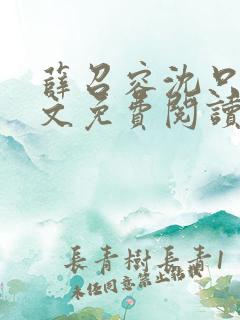 薛召容沈口
文免費閱讀
長青樹長青1
未任同意禁止転載